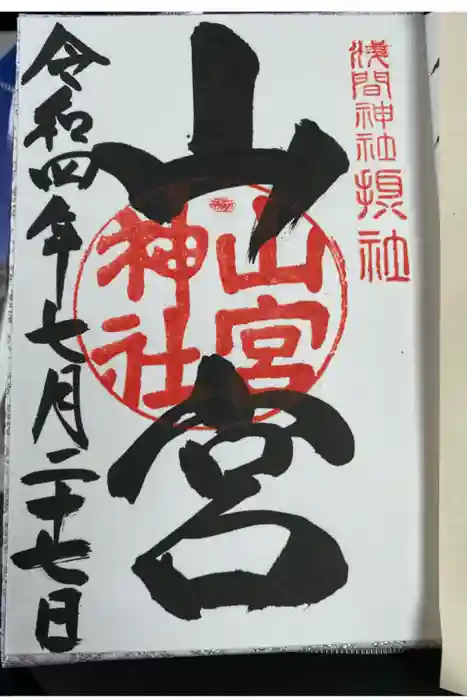 浅間神社摂社
山宮
山宮
神社
令和四年七月二十七日